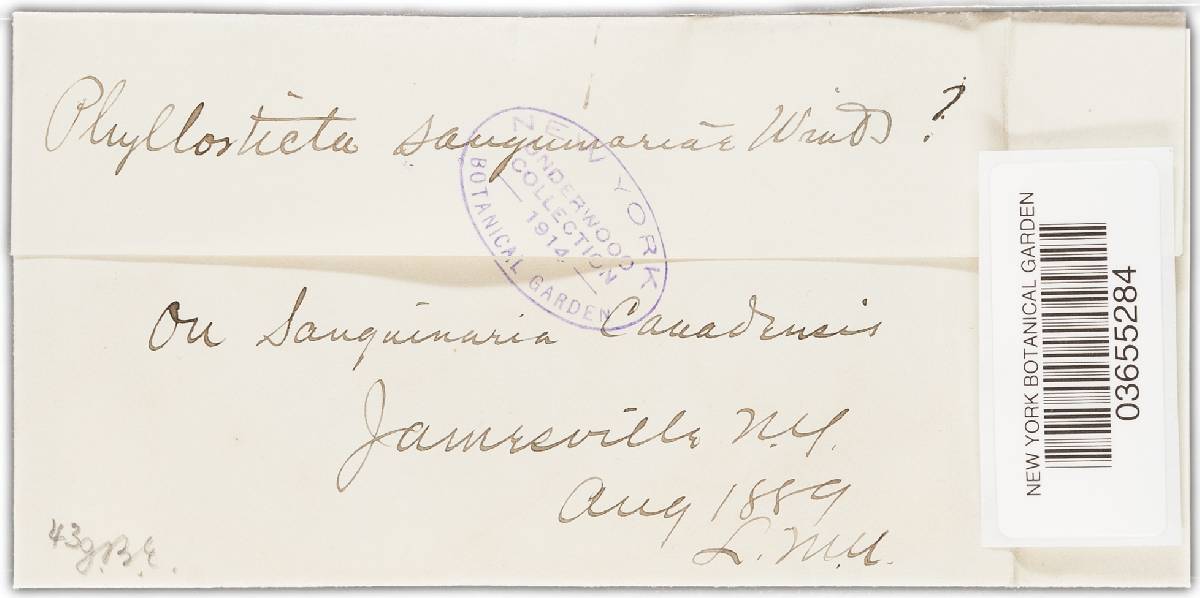 Phyllosticta sanguinariae Wint ?
NEW YORK
BOTANICAL GARDEN
UNDERWOOD
COLLECTION
— 1914. —
On Sanguinaria Canadensis
Jamesville N.Y.
Aug 1889
L.M.U.
43
NEW YORK BOTANICAL GARDEN
03655284